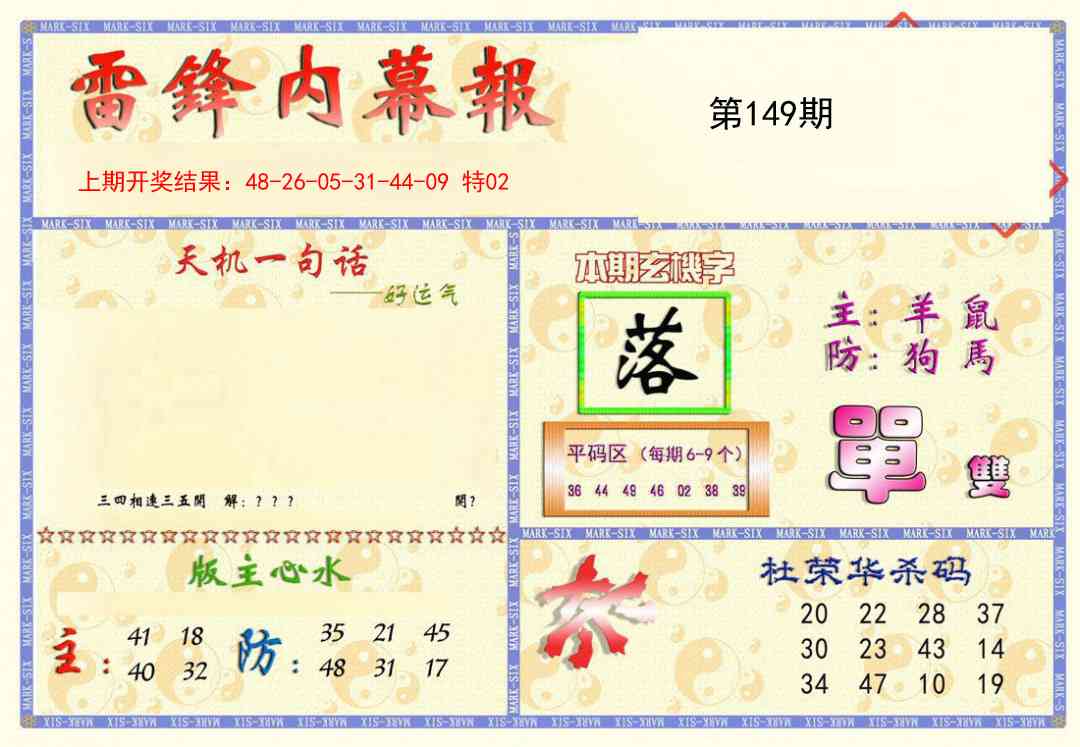 雷鋒内幕報
第149期
上期开奖结果：48-26-05-31-44-09 特02
天机一句话
——好运气
三四相連三五開 解：？？？ 開？
本期玄機字
落
主：羊 鼠
防：狗 馬
平码区（每期6-9个）
36 44 49 46 02 38 39
單 雙
版主心水
主：
41 18
40 32
防：
35 21 45
48 31 17
杀
杜荣华杀码
20 22 28 37
30 23 43 14
34 47 10 19
MARK-SIX